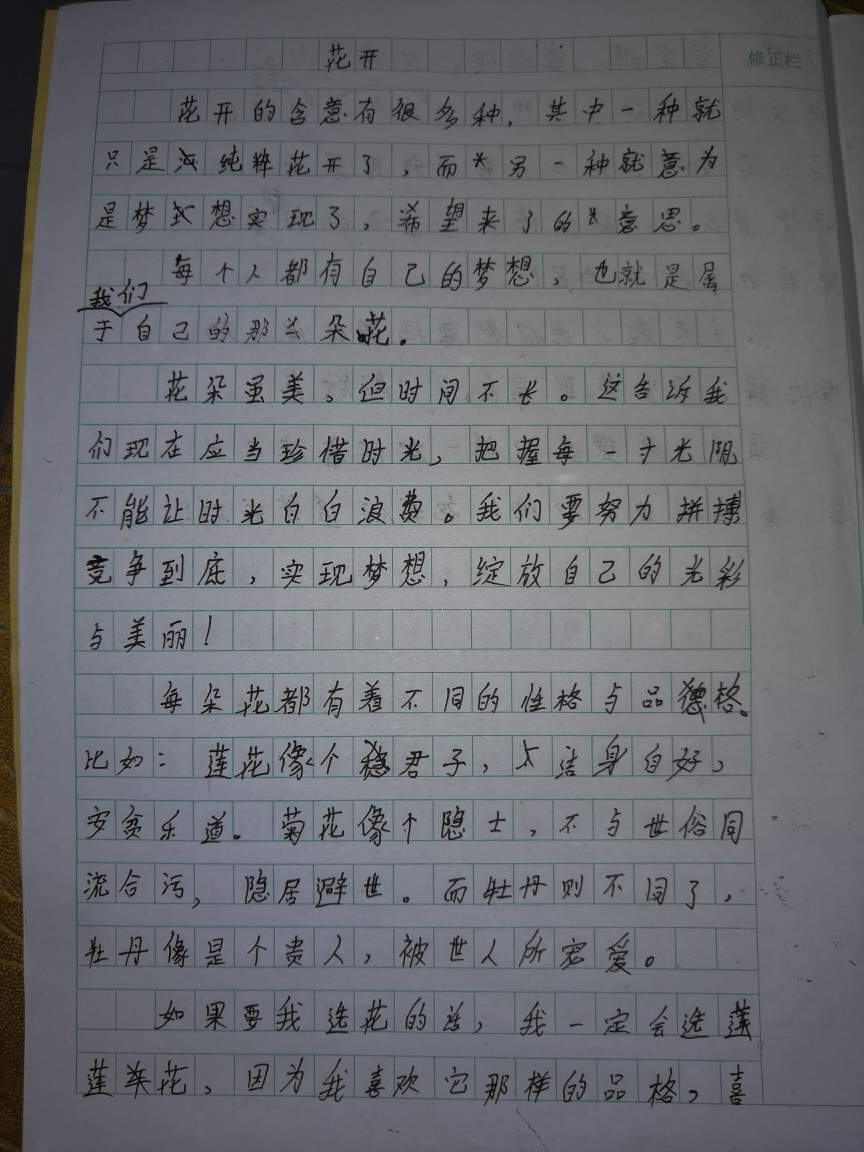 修正栏
花开
花开的含意有很多种，其中一种就
只是纯粹花开了，而另一种就意为
是梦想实现了，希望来了的意思。
每个人都有自己的梦想，也就是属
我们
于自己的那朵花。
花朵虽美，但时间不长。这告诉我
们现在应当珍惜时光，把握每一寸光阴
不能让时光白白浪费。我们要努力拼搏
竞争到底，实现梦想，绽放自己的光彩
与美丽！
每朵花都有着不同的性格与品德格。
比如：莲花像个君子，洁身自好，
安贫乐道。菊花像个隐士，不与世俗同
流合污，隐居避世。而牡丹则不同了，
牡丹像是个贵人，被世人所宠爱。
如果要我选花的话，我一定会选莲
莲花，因为我喜欢它那样的品格，喜